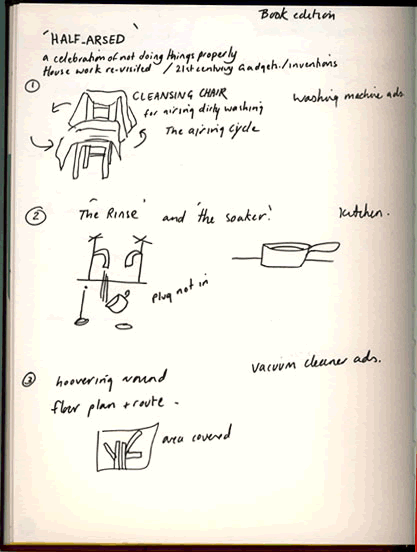 Book edition
'HALF-ARSED'
a celebration of not doing things properly
House work re-visited / 21st century Gadgets/inventions
① CLEANSING CHAIR
for airing dirty washing
The airing cycle
Washing machine ads
② 'The Rinse' and 'the soaker'.
Kitchen.
plug not in
③ hoovering round
floor plan + route.
Vacuum cleaner ads.
area covered